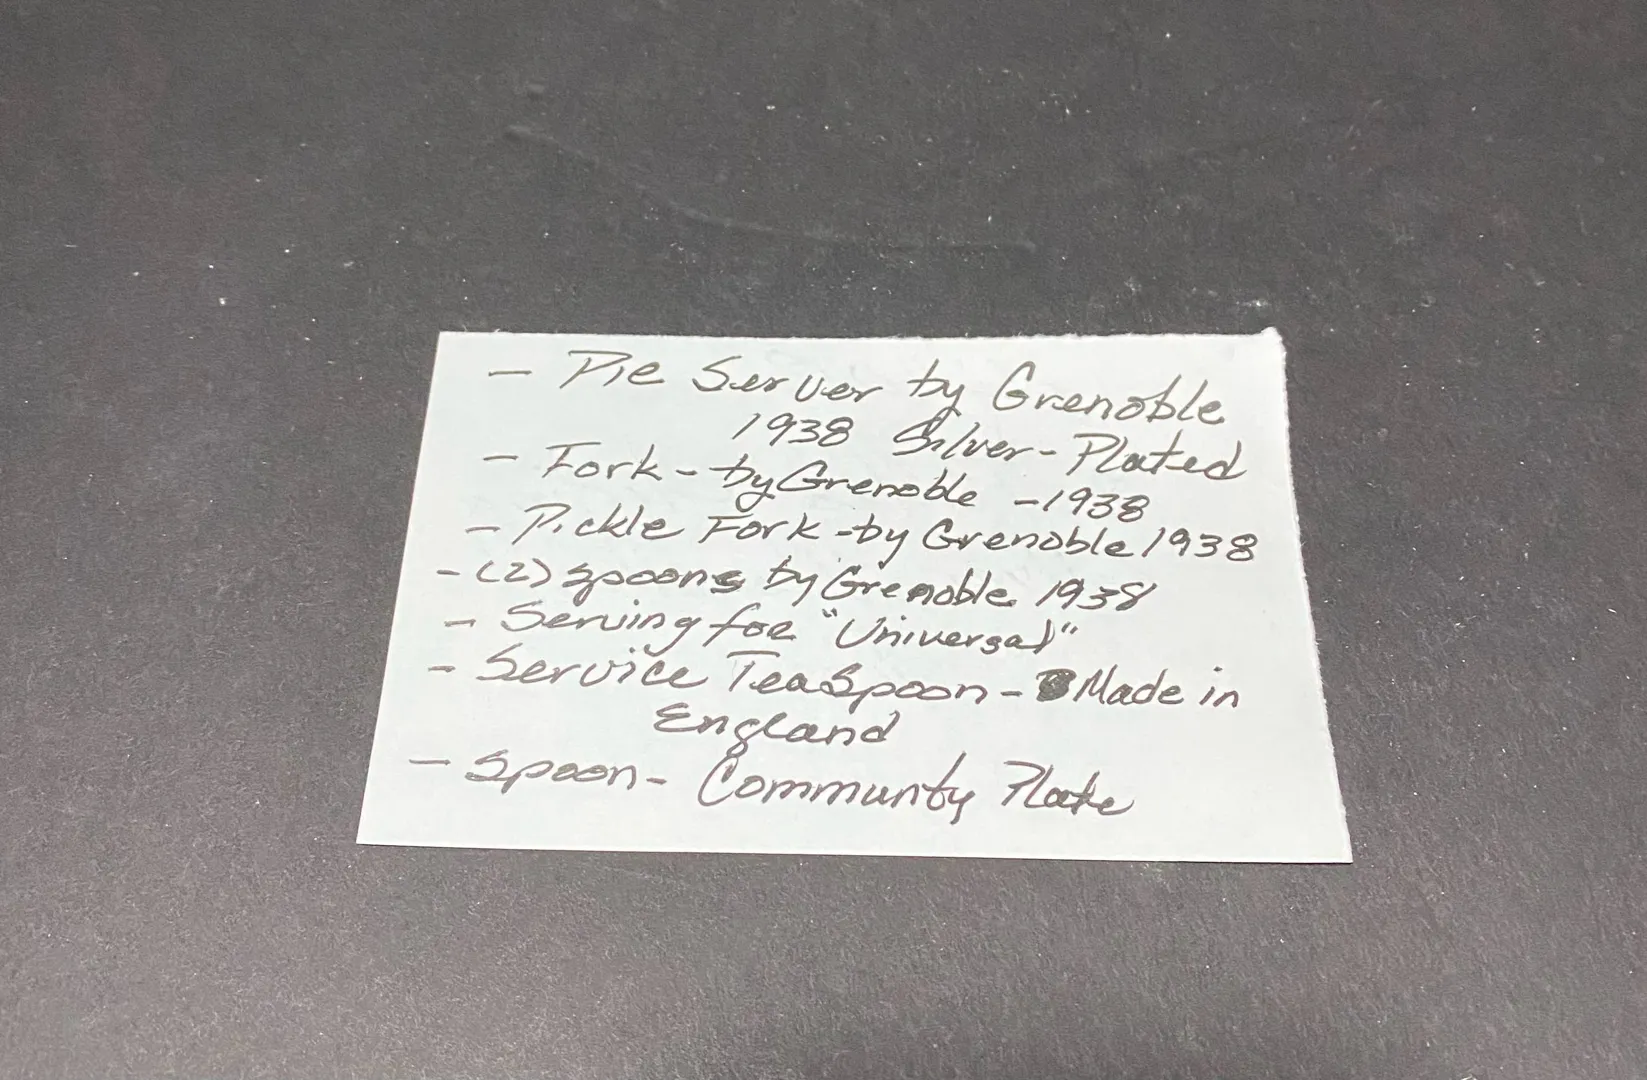 - Pie Server by Grenoble
1938 Silver-Plated
- Fork - by Grenoble - 1938
- Pickle Fork - by Grenoble 1938
- (2) spoons by Grenoble 1938
- Serving for "Universal"
- Service TeaSpoon - Made in
England
- Spoon - Communty Plate